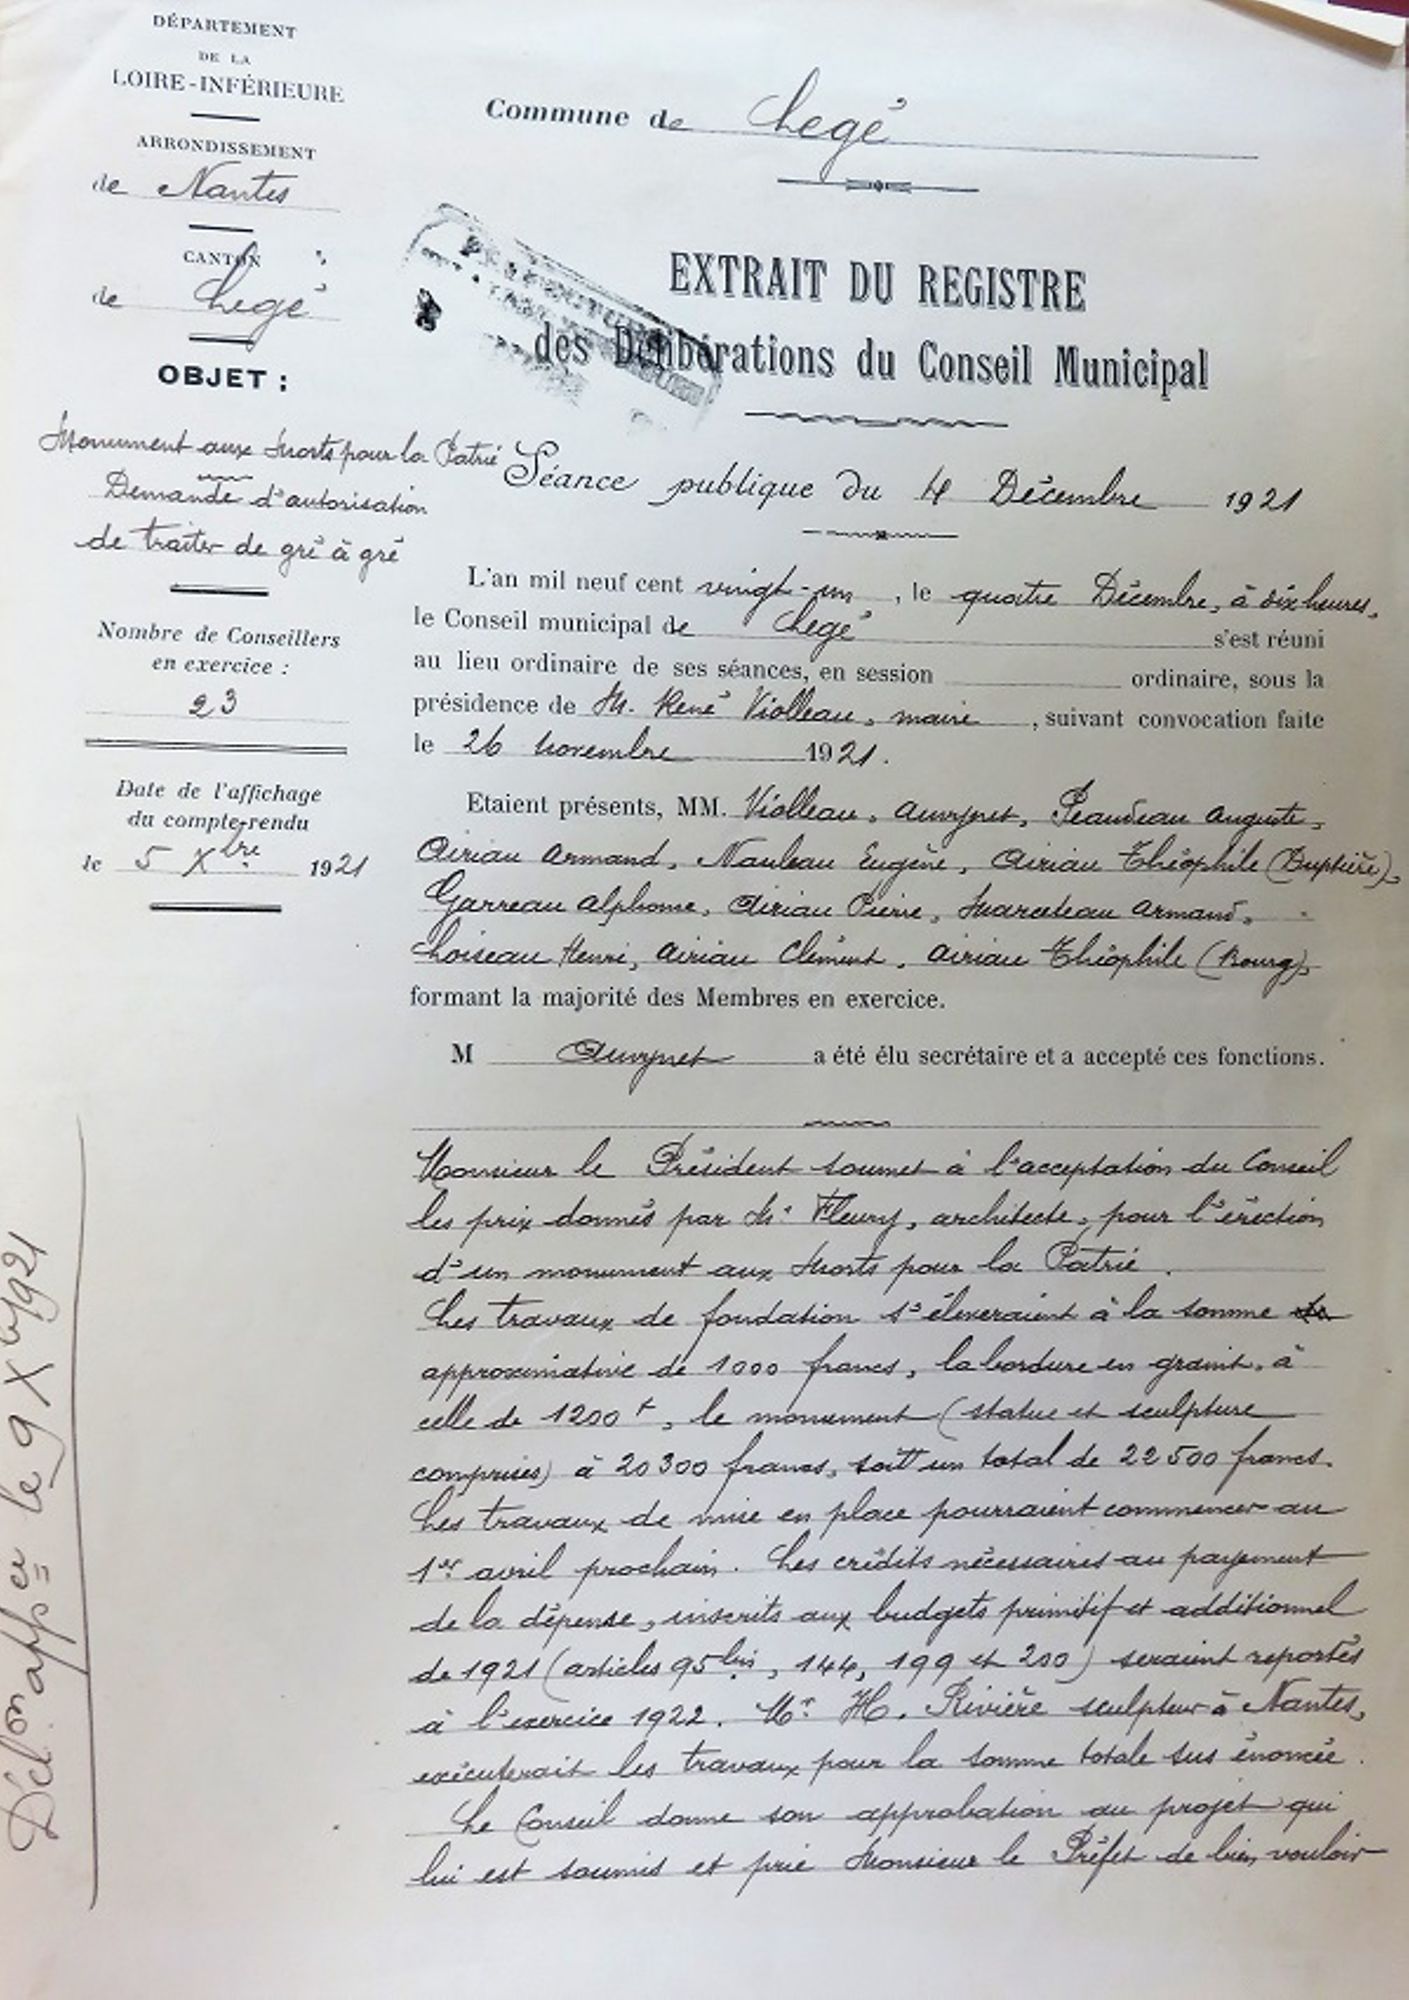 DÉPARTEMENT
DE LA
LOIRE-INFÉRIEURE
ARRONDISSEMENT
de Nantes
CANTON
de Legé
OBJET :
Monument aux Morts pour la Patrie
Demande d'autorisation
de traiter de gré à gré
Nombre de Conseillers
en exercice :
23
Date de l'affichage
du compte-rendu
le 5 Xbre 1921
Commune de Legé
EXTRAIT DU REGISTRE
des Délibérations du Conseil Municipal
Séance publique du 4 Décembre 1921
L'an mil neuf cent vingt-un, le quatre Décembre, à dix heures,
le Conseil municipal de Legé s'est réuni
au lieu ordinaire de ses séances, en session ordinaire, sous la
présidence de M. René Violleau, maire, suivant convocation faite
le 26 novembre 1921.
Etaient présents, MM. Violleau, Auvynet, Peaudeau Auguste,
Airiau Armand, Nauleau Eugène, Airiau Théophile (Duptière),
Garreau Alphonse, Airiau Pierre, Marceteau Armand,
Loiseau Henri, Airiau Clément, Airiau Théophile (Bourg),
formant la majorité des Membres en exercice.
M Auvynet a été élu secrétaire et a accepté ces fonctions.
Monsieur le Président soumet à l'acceptation du Conseil
les prix donnés par Mr Fleury, architecte, pour l'érection
d'un monument aux Morts pour la Patrie.
Les travaux de fondation s'élèveraient à la somme
approximative de 1000 francs, la bordure en granit, à
celle de 1200 f, le monument (statue et sculpture
comprises) à 20300 francs, soit un total de 22500 francs.
Les travaux de mise en place pourraient commencer au
1er avril prochain. Les crédits nécessaires au payement
de la dépense, inscrits aux budgets primitif et additionnel
de 1921 (articles 95bis, 144, 199 et 200) seraient reportés
à l'exercice 1922. Mr. H. Rivière sculpteur à Nantes,
exécuterait les travaux pour la somme totale sus énoncée.
Le Conseil donne son approbation au projet qui
lui est soumis et prie Monsieur le Préfet de bien vouloir
Délon appée le 9 Xb 1921